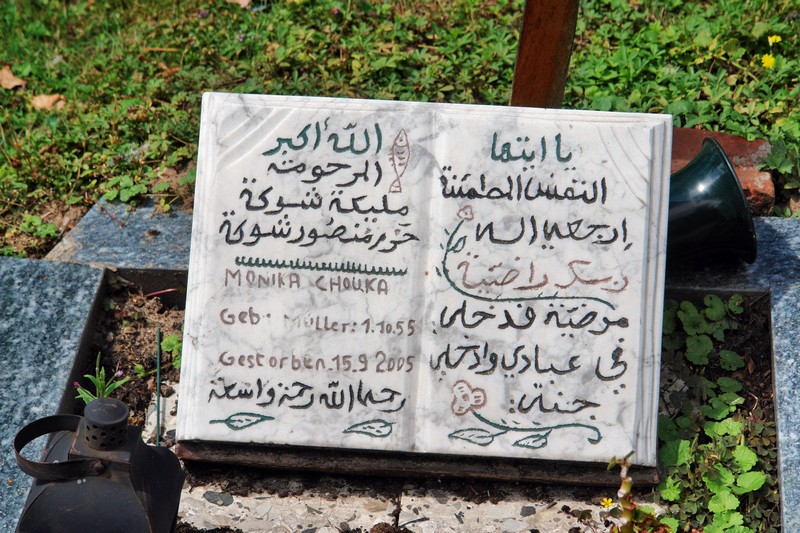 يا ايتها
النفس المطمئنة
إرجعي الى
ربك راضية
مرضية فدخلي
في عبادي وادخلي
جنتي
الله أكبر
المرحومة
مليكة شوكة
حرم منصور شوكة
MONIKA CHOUKA
Geb: Müller: 1.10.55
Gestorben. 15.9 2005
رحمها الله رحمة واسعة